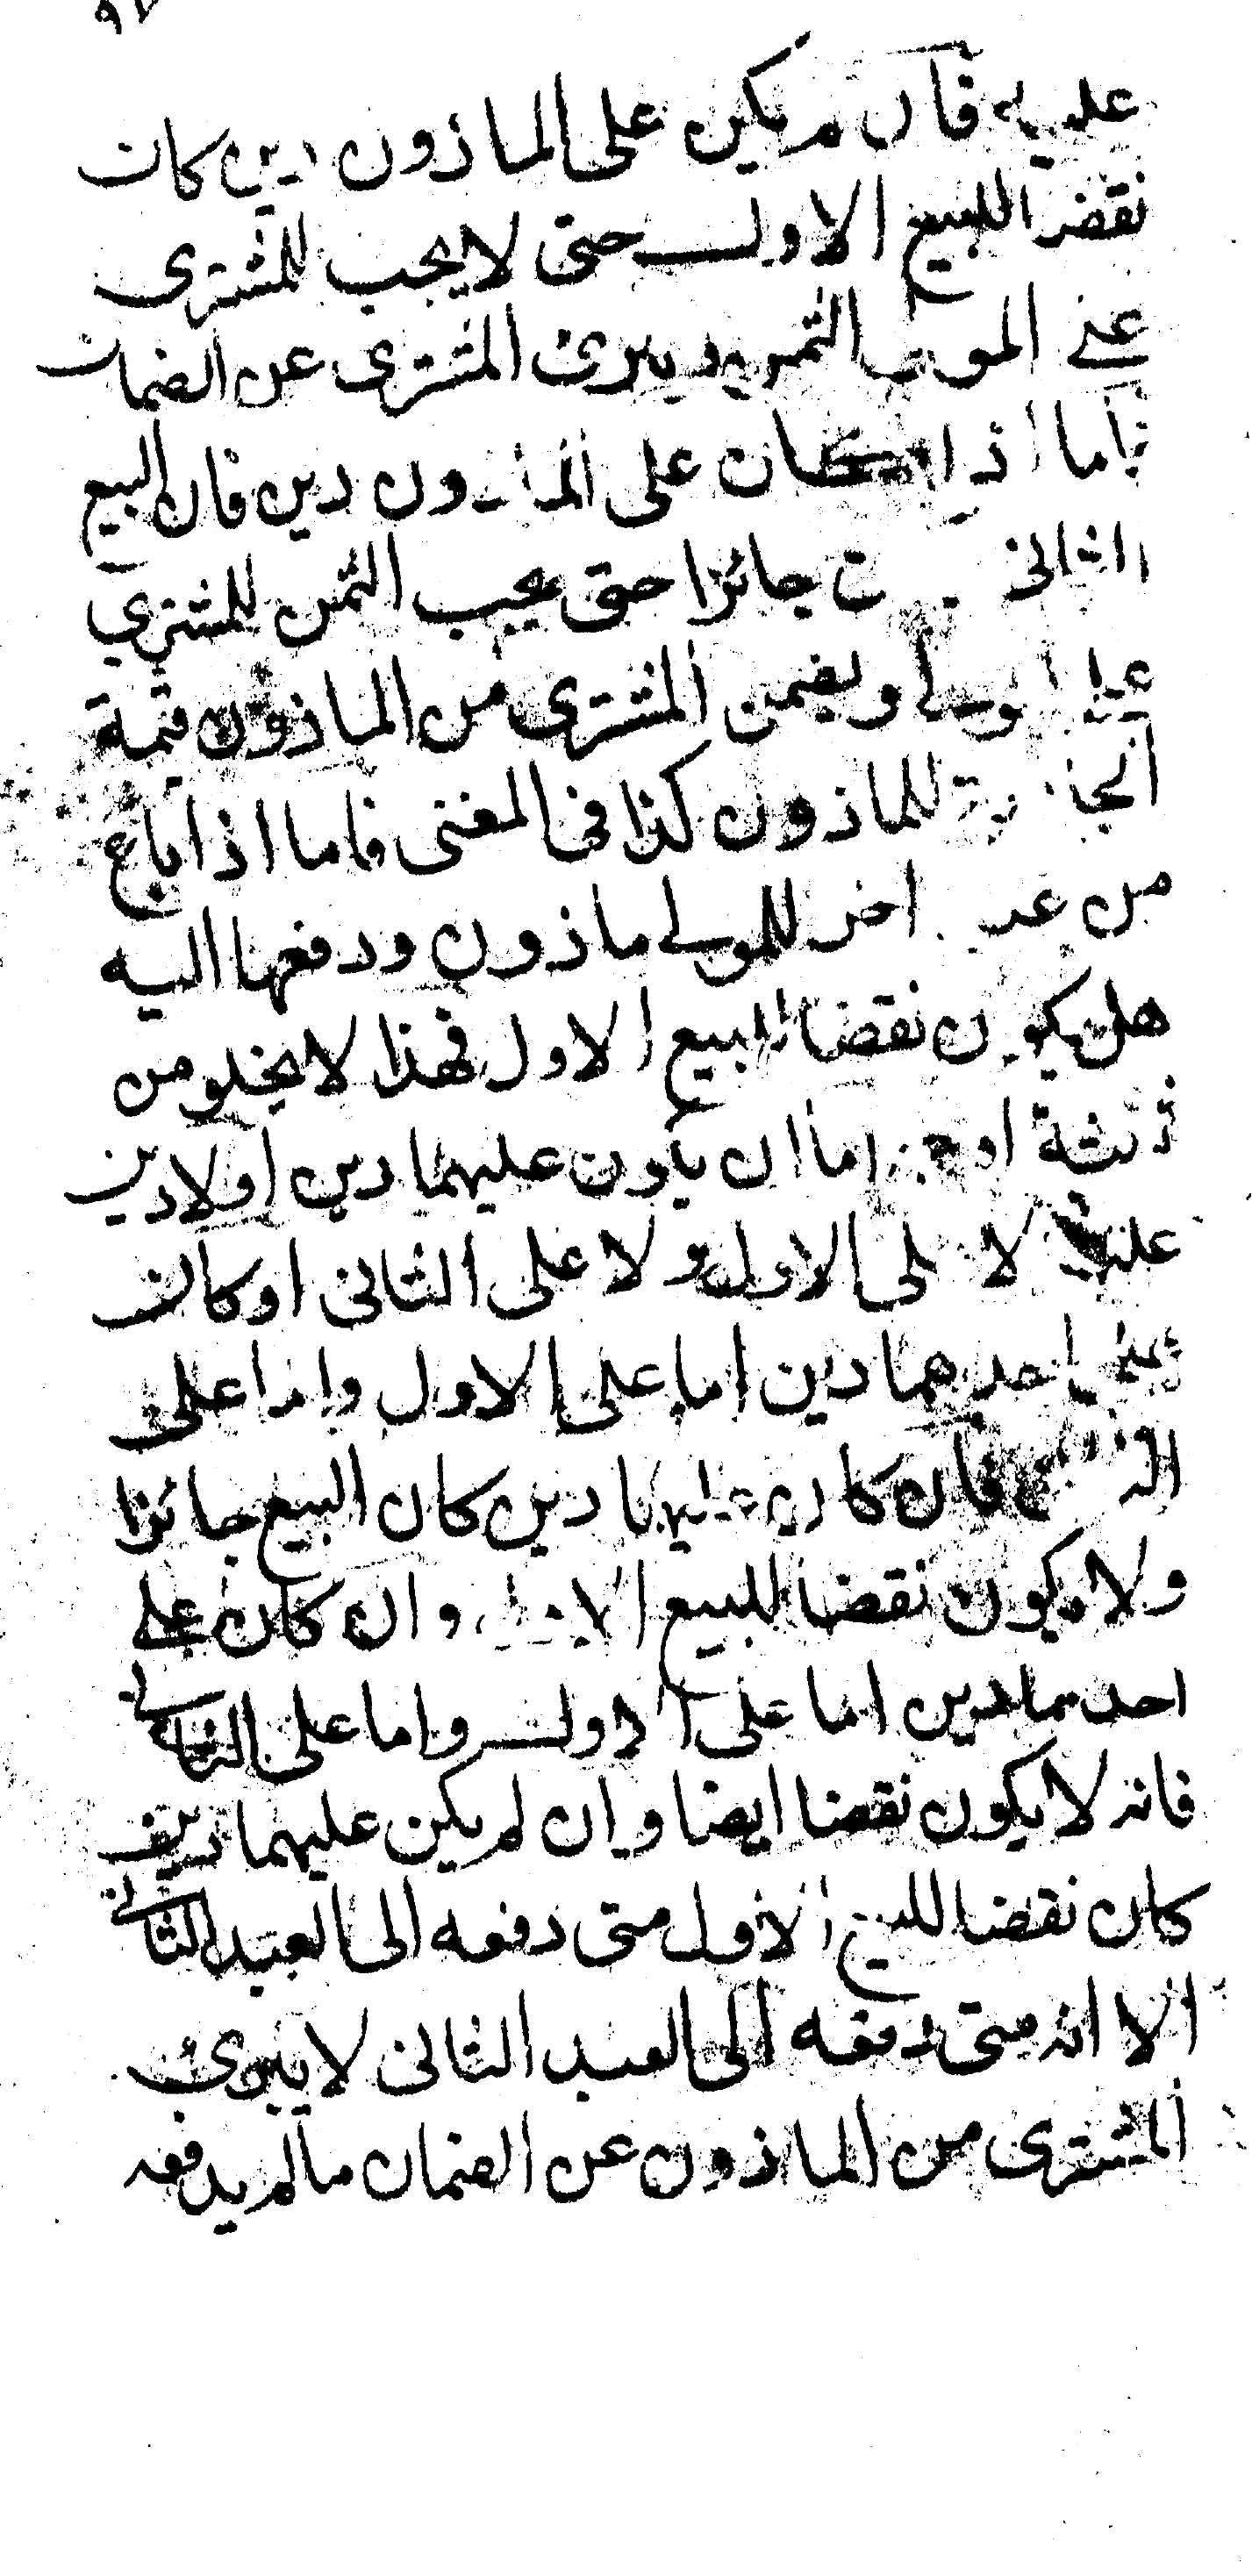 ٩٧
عليه فان لم يكن على الماذون دين كان
نقضا للبيع الاول حتى لا يجب للمشترى
على المولى الثمن ويبرئ المشترى عن الضمان
فاما اذا كان على الماذون دين فان البيع
الثانى جائزا حتى يجب الثمن للمشتري
على المولى ويضمن المشترى من الماذون قيمة
الجارية للماذون كذا فى المغنى فاما اذا باع
من عبد اخر للمولى ماذون ودفعها اليه
هل يكون نقضا للبيع الاول فهذا لا يخلو من
ثلثة اوجه اما ان يكون عليهما دين اولا دين
عليهما لا على الاول ولا على الثانى او كان
على احدهما دين اما على الاول واما على
الثانى فان كان عليهما دين كان البيع جائزا
ولا يكون نقضا للبيع الاول وان كان على
احدهما دين اما على الاول واما على الثانى
فانه لا يكون نقضا ايضا وان لم يكن عليهما دين
كان نقضا للبيع الاول متى دفعه الى العبد الثانى
الا انه متى دفعه الى العبد الثانى لا يبرئ
المشترى من الماذون عن الضمان مالم يدفعه